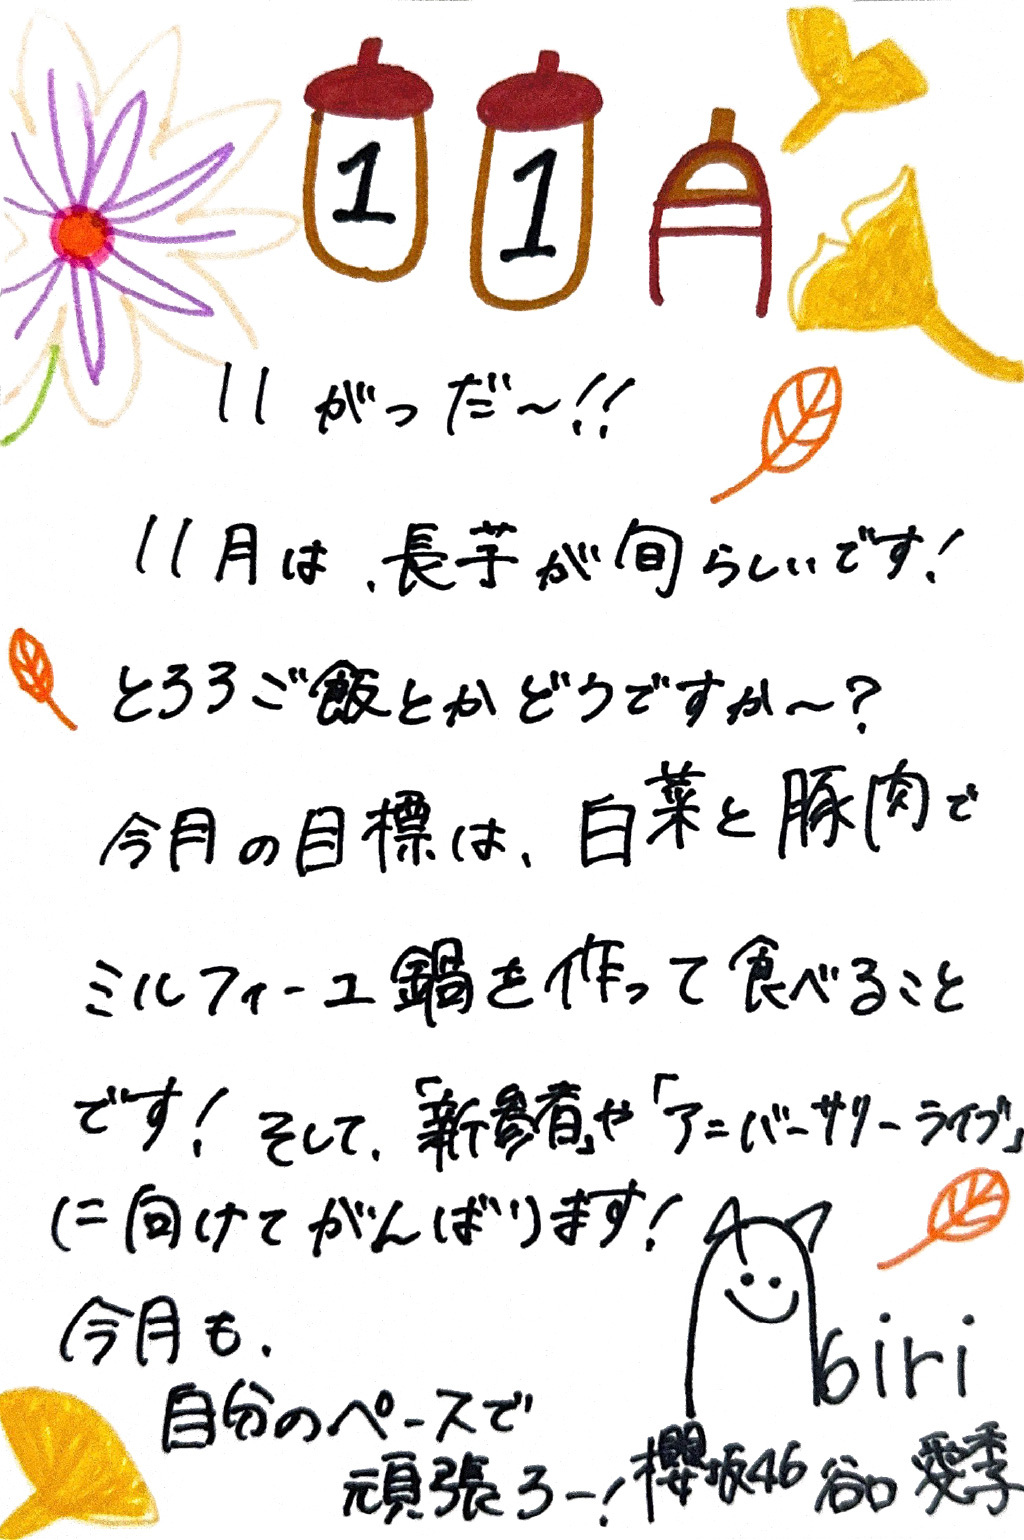 11月
11がつだ〜!!
11月は、長芋が旬らしいです!
とろろご飯とかどうですか〜?
今月の目標は、白菜と豚肉で
ミルフィーユ鍋を作って食べること
です!そして、「新参者」や「アニバーサリーライブ」
に向けてがんばります!
今月も、
自分のペースで
頑張ろー!
biri
櫻坂46 谷口 愛季